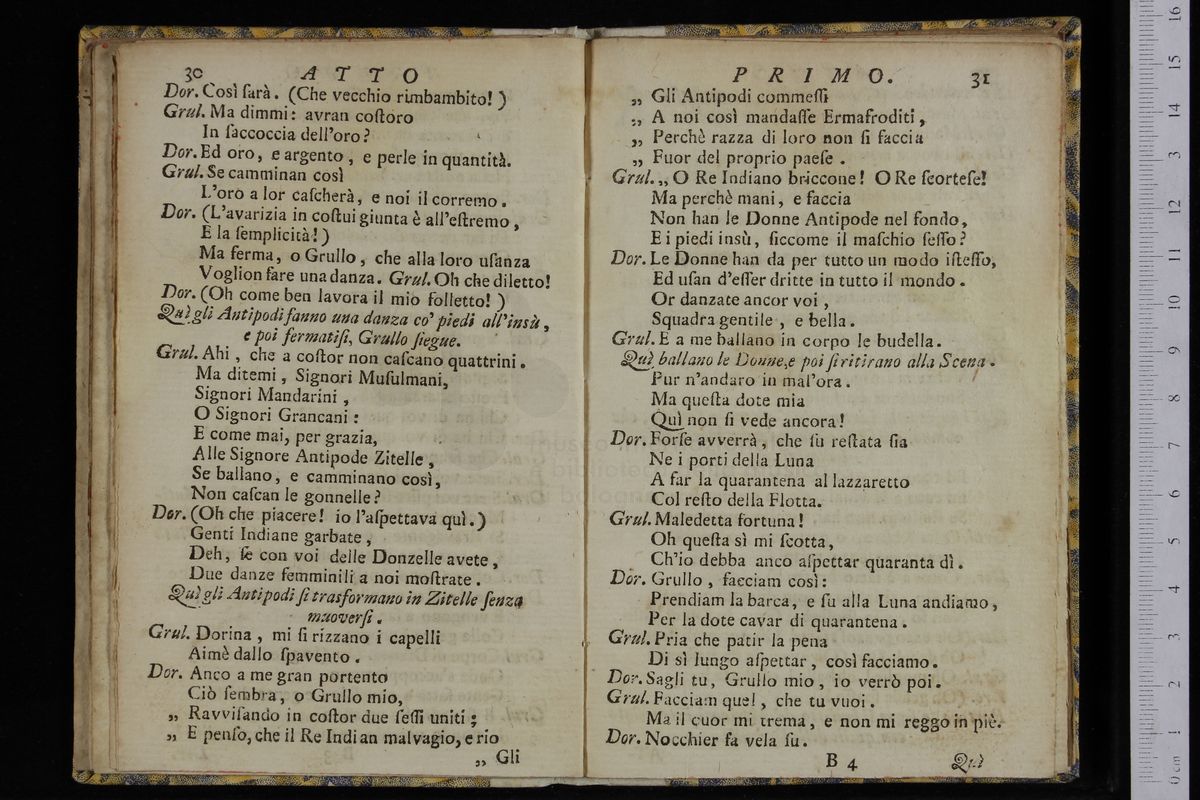 30 ATTO
Dor. Così ſarà. (Che vecchio rimbambito!)
Grul. Ma dimmi: avran coſtoro
In ſaccoccia dell'oro?
Dor. Ed oro, e argento, e perle in quantità.
Grul. Se camminan così
L'oro a lor caſcherà, e noi il corremo.
Dor. (L'avarizia in coſtui giunta è all'eſtremo,
E la ſemplicità!)
Ma ferma, o Grullo, che alla loro uſanza
Voglion fare una danza. Grul. Oh che diletto!
Dor. (Oh come ben lavora il mio folletto!)
Quì gli Antipodi fanno una danza co' piedi all'insù,
e poi fermatiſi, Grullo ſiegue.
Grul. Ahi, che a coſtor non caſcano quattrini.
Ma ditemi, Signori Muſulmani,
Signori Mandarini,
O Signori Grancani:
E come mai, per grazia,
Alle Signore Antipode Zitelle,
Se ballano, e camminano così,
Non caſcan le gonnelle?
Dor. (Oh che piacere! io l'aſpettava quì.)
Genti Indiane garbate,
Deh, ſe con voi delle Donzelle avete,
Due danze femminili a noi moſtrate.
Quì gli Antipodi ſi trasformano in Zitelle ſenza
muoverſi.
Grul. Dorina, mi ſi rizzano i capelli
Aimè dallo ſpavento.
Dor. Anco a me gran portento
Ciò ſembra, o Grullo mio,
„ Ravviſando in coſtor due ſeſſi uniti;
„ E penſo, che il Re Indian malvagio, e rio
„ Gli
PRIMO. 31
„ Gli Antipodi commeſſi
„ A noi così mandaſſe Ermafroditi,
„ Perchè razza di loro non ſi faccia
„ Fuor del proprio paeſe.
Grul. „ O Re Indiano briccone! O Re ſcorteſe!
Ma perchè mani, e faccia
Non han le Donne Antipode nel fondo,
E i piedi insù, ſiccome il maſchio ſeſſo?
Dor. Le Donne han da per tutto un modo iſteſſo,
Ed uſan d'eſſer dritte in tutto il mondo.
Or danzate ancor voi,
Squadra gentile, e bella.
Grul. E a me ballano in corpo le budella.
Quì ballano le Donne, e poi ſi ritirano alla Scena.
Pur n'andaro in mal'ora.
Ma queſta dote mia
Quì non ſi vede ancora!
Dor. Forſe avverrà, che ſu reſtata ſia
Ne i porti della Luna
A far la quarantena al lazzaretto
Col reſto della Flotta.
Grul. Maledetta fortuna!
Oh queſta sì mi ſcotta,
Ch'io debba anco aſpettar quaranta dì.
Dor. Grullo, facciam così:
Prendiam la barca, e ſu alla Luna andiamo,
Per la dote cavar di quarantena.
Grul. Pria che patir la pena
Di sì lungo aſpettar, così facciamo.
Dor. Sagli tu, Grullo mio, io verrò poi.
Grul. Facciam quel, che tu vuoi.
Ma il cuor mi trema, e non mi reggo in piè.
Dor. Nocchier fa vela ſu.
B 4 Quì